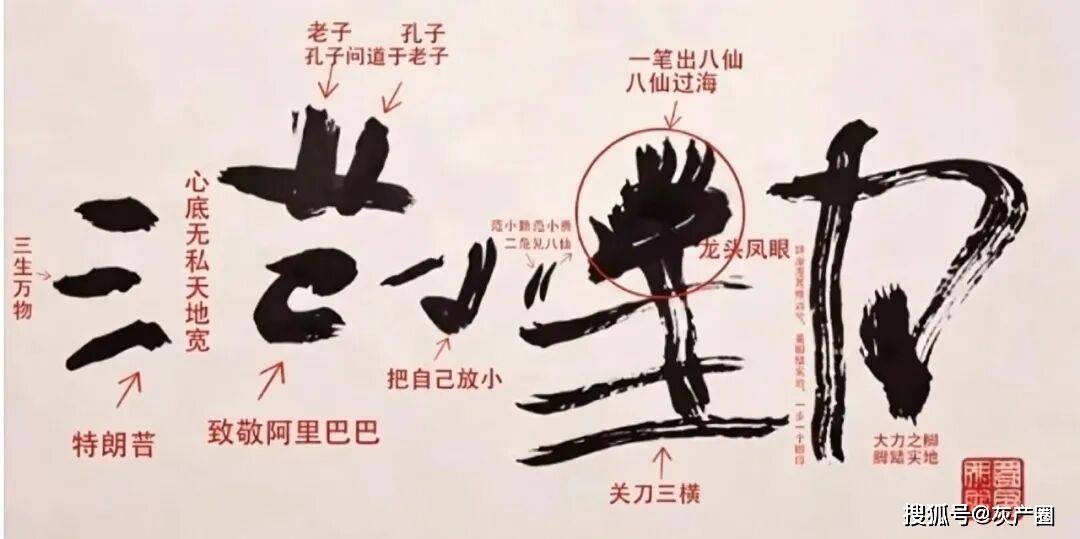 老子 孔子
孔子问道于老子
一笔出八仙
八仙过海
范小勤
三生万物
心底无私天地宽
龙头凤眼
把自己放小
特朗苔
致敬阿里巴巴
关刀三横
大力之脚
脚踏实地
搜狐号@灰产圈